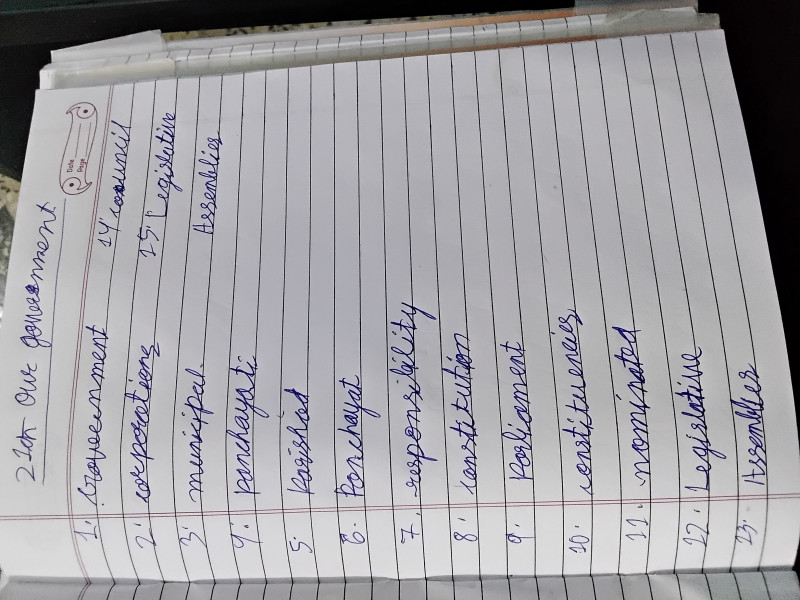 21st Our government
Date
Page
1. Government
2. corporations
3. municipal.
4. panchayati
5. Parishad
6. Panchayat
7. responsibility
8. constitution
9. Parliament
10. constituencies
11. nominated
12. Legislative
13. Assemblies
14. council
15. Legislative
Assemblies